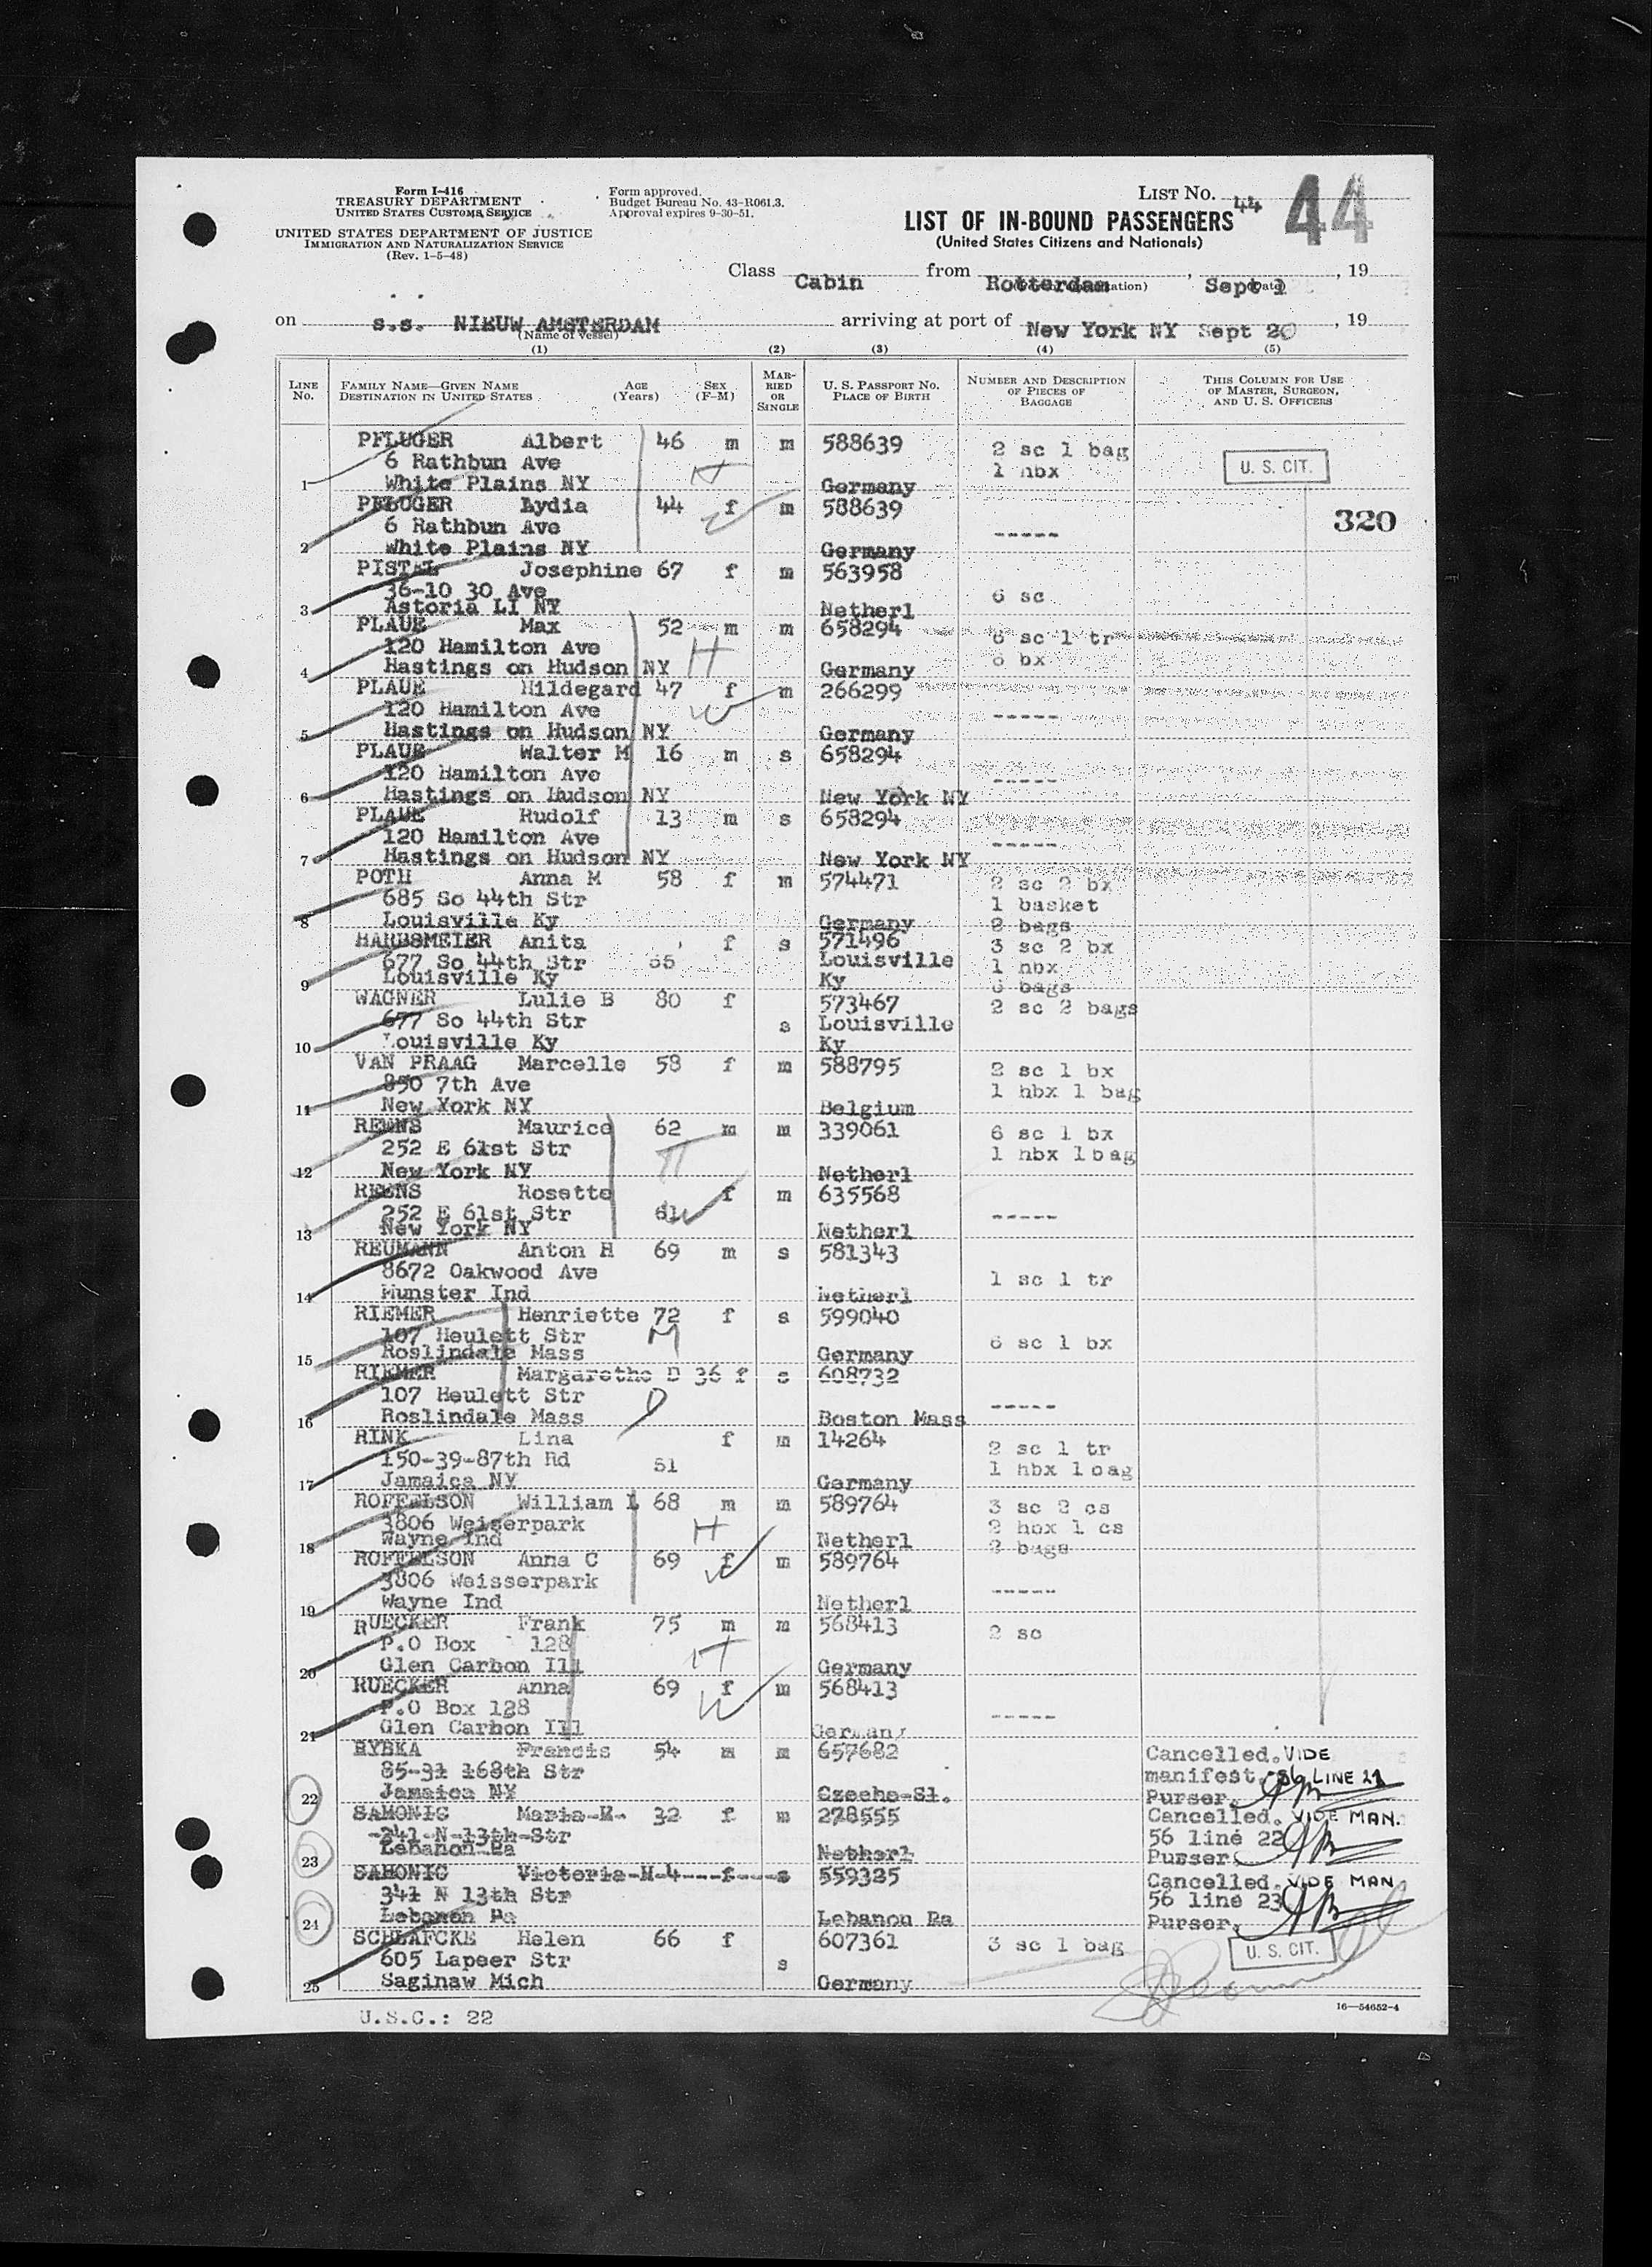 Form I-416
TREASURY DEPARTMENT
UNITED STATES CUSTOMS SERVICE
UNITED STATES DEPARTMENT OF JUSTICE
IMMIGRATION AND NATURALIZATION SERVICE
(Rev. 1-5-48)
Form approved.
Budget Bureau No. 43-R061.3.
Approval expires 9-30-51.
LIST NO. 44 44
LIST OF IN-BOUND PASSENGERS
(United States Citizens and Nationals)
Class Cabin from Rotterdam, Sept 1, 19
on s.s. NIEUW AMSTERDAM arriving at port of New York NY Sept 20, 19
(Name of vessel)
(1) (2) (3) (4) (5)
LINE NO. FAMILY NAME—GIVEN NAME DESTINATION IN UNITED STATES AGE (Years) SEX (F-M) MARRIED OR SINGLE U. S. PASSPORT NO. PLACE OF BIRTH NUMBER AND DESCRIPTION OF PIECES OF BAGGAGE THIS COLUMN FOR USE OF MASTER, SURGEON, AND U. S. OFFICERS
PFLUGER Albert 46 m m 588639 2 sc 1 bag
6 Rathbun Ave H 1 hbx U. S. CIT.
1 White Plains NY Germany
PFLUGER Lydia 44 f m 588639 320
6 Rathbun Ave W -----
2 White Plains NY Germany
PISTAL Josephine 67 f m 563958
36-10 30 Ave 6 sc
3 Astoria LI NY Netherl
PLAUE Max 52 m m 658294 6 sc 1 tr
120 Hamilton Ave H 6 bx
4 Hastings on Hudson NY Germany
PLAUE Hildegard 47 f m 266299
120 Hamilton Ave W -----
5 Hastings on Hudson NY Germany
PLAUE Walter M 16 m s 658294
120 Hamilton Ave -----
6 Hastings on Hudson NY New York NY
PLAUE Rudolf 13 m s 658294
120 Hamilton Ave -----
7 Hastings on Hudson NY New York NY
POTH Anna M 58 f m 574471 2 sc 2 bx
685 So 44th Str 1 basket
8 Louisville Ky Germany 2 bags
HARBSMEIER Anita f s 571496 3 sc 2 bx
677 So 44th Str 55 Louisville 1 hbx
9 Louisville Ky Ky bags
WAGNER Lulie B 80 f 573467 2 sc 2 bags
677 So 44th Str s Louisville
10 Louisville Ky Ky
VAN PRAAG Marcelle 58 f m 588795 2 sc 1 bx
850 7th Ave 1 hbx 1 bag
11 New York NY Belgium
REENS Maurice 62 m m 339061 6 sc 1 bx
252 E 61st Str H 1 hbx 1 bag
12 New York NY Netherl
REENS Rosette f m 635568
252 E 61st Str 61 W -----
13 New York NY Netherl
REUMANN Anton H 69 m s 581343
8672 Oakwood Ave 1 sc 1 tr
14 Munster Ind Netherl
RIEMER Henriette 72 f s 599040
107 Heulett Str M 6 sc 1 bx
15 Roslindale Mass Germany
RIEMER Margarethe D 36 f s 608732
107 Heulett Str D -----
16 Roslindale Mass Boston Mass
RINK Lina f m 14264 2 sc 1 tr
150-39-87th Rd 51 1 hbx 1 bag
17 Jamaica NY Germany
ROFFELSON William L 68 m m 589764 3 sc 2 cs
3806 Weiserpark H 2 hbx 1 cs
18 Wayne Ind Netherl 2 bags
ROFFELSON Anna C 69 f m 589764
3806 Weisserpark W -----
19 Wayne Ind Netherl
RUECKER Frank 75 m m 568413 2 sc
P.O Box 128 H
20 Glen Carbon Ill Germany
RUECKER Anna 69 f m 568413
P.O Box 128 W -----
21 Glen Carbon Ill Germany
RYBKA Francis 54 m m 657682 Cancelled. VIDE
85-31 168th Str manifest. 56 LINE 21
22 Jamaica NY Czecho-Sl. Purser.
SAMONIG Maria-M- 32 f m 278555 Cancelled. VIDE MAN.
-341-N-13th-Str 56 line 22
23 Lebanon Pa Netherl Purser.
SAMONIG Victoria-M-4---f----s 559325 Cancelled. VIDE MAN
341 N 13th Str 56 line 23
24 Lebanon Pa Lebanon Pa Purser.
SCHLAFCKE Helen 66 f 607361 3 sc 1 bag U. S. CIT.
605 Lapeer Str s
25 Saginaw Mich Germany
16—54652-4
U.S.C.: 22